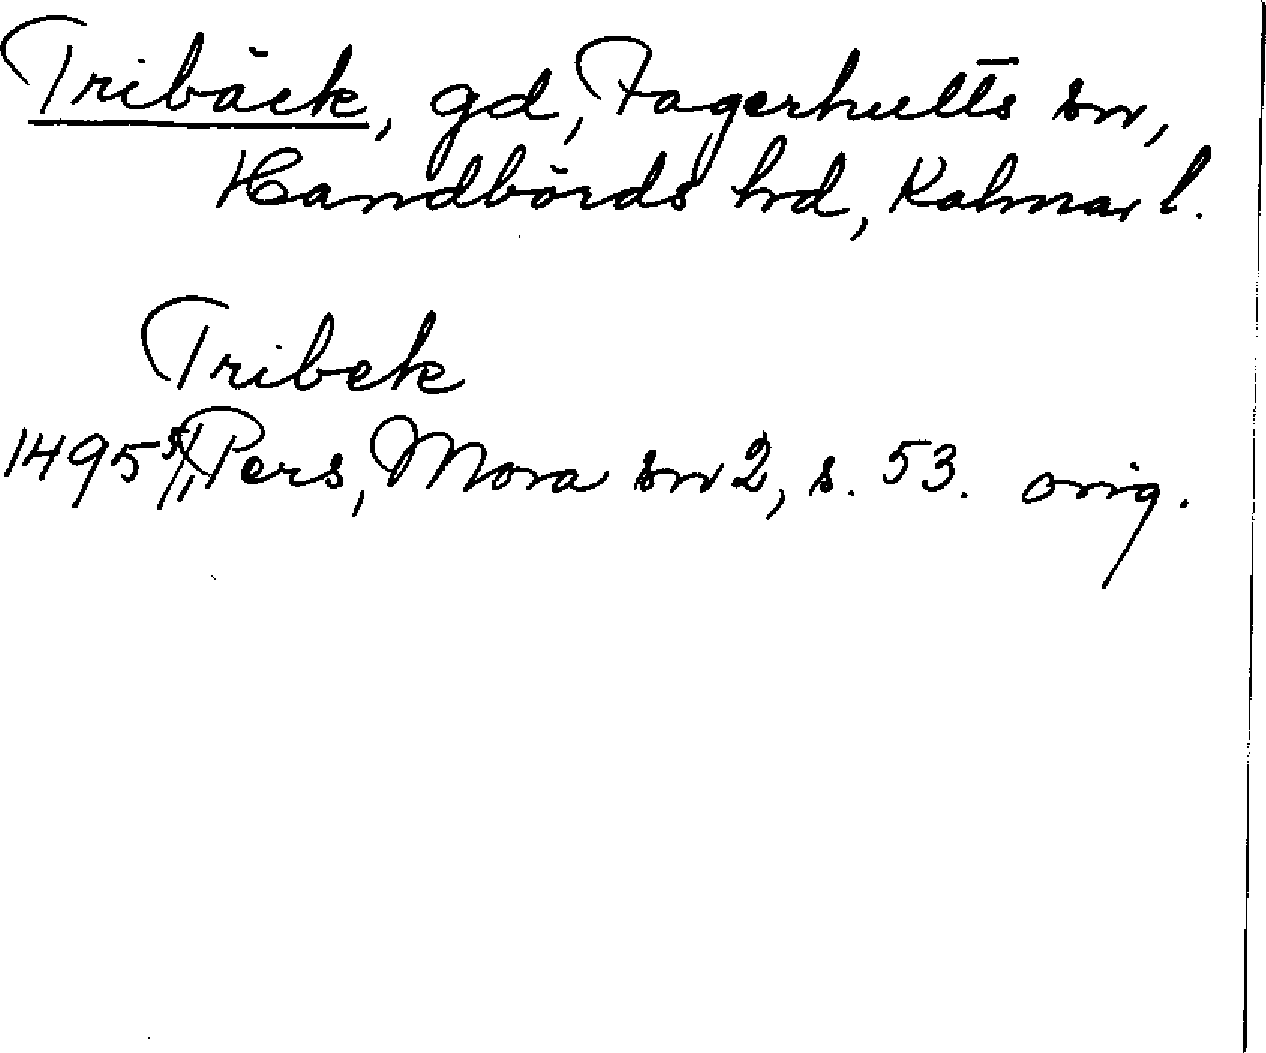 Tribäck, gd, Fagerhults sn,
Handbörds hd, Kalmar l.
Tribek
1495 5/1 Pers, Mora sn 2, s. 53. orig.